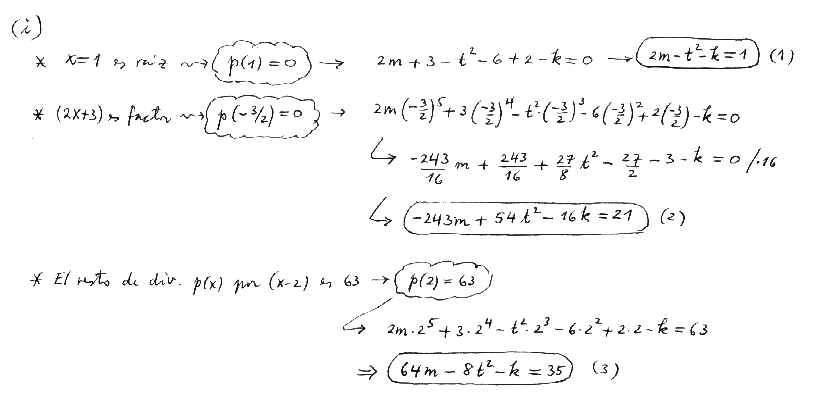 (i)
* x=1 es raíz ⇝ p(1)=0 → 2m + 3 - t² - 6 + 2 - k = 0 → 2m - t² - k = 1 (1)
* (2x+3) es factor ⇝ p(-3/2)=0 → 2m(-3/2)⁵ + 3(-3/2)⁴ - t²·(-3/2)³ - 6(-3/2)² + 2(-3/2) - k = 0
↳ -243/16 m + 243/16 + 27/8 t² - 27/2 - 3 - k = 0 /·16
↳ -243m + 54t² - 16k = 21 (2)
* El resto de div. p(x) por (x-2) es 63 → p(2) = 63
↳ 2m·2⁵ + 3·2⁴ - t²·2³ - 6·2² + 2·2 - k = 63
⇒ 64m - 8t² - k = 35 (3)